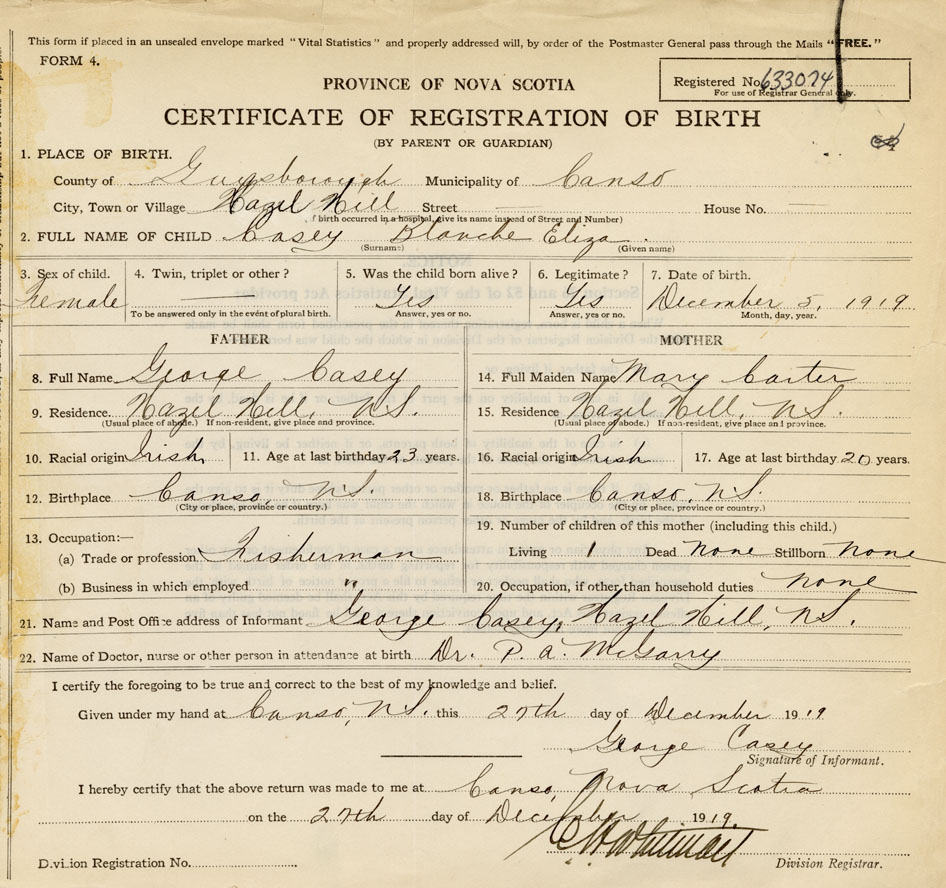 This form if placed in an unsealed envelope marked "Vital Statistics" and properly addressed will, by order of the Postmaster General pass through the Mails "FREE."
FORM 4.
PROVINCE OF NOVA SCOTIA
Registered No. 633074
For use of Registrar General only.
CERTIFICATE OF REGISTRATION OF BIRTH
(BY PARENT OR GUARDIAN)
1. PLACE OF BIRTH.
County of Guysborough Municipality of Canso
City, Town or Village Hazel Hill Street — House No. —
If birth occurred in a hospital, give its name instead of Street and Number)
2. FULL NAME OF CHILD Casey Blanche Eliza.
(Surname) (Given name)
3. Sex of child. 4. Twin, triplet or other? 5. Was the child born alive? 6. Legitimate? 7. Date of birth.
Female — Yes Yes December 5, 1919.
To be answered only in the event of plural birth. Answer, yes or no. Answer, yes or no. Month, day, year.
FATHER MOTHER
8. Full Name George Casey 14. Full Maiden Name Mary Carter
9. Residence. Hazel Hill, N.S. 15. Residence Hazel Hill, N.S.
(Usual place of abode.) If non-resident, give place and province. (Usual place of abode.) If non-resident, give place and province.
10. Racial origin Irish 11. Age at last birthday 23 years. 16. Racial origin Irish 17. Age at last birthday 20 years.
12. Birthplace Canso, N.S. 18. Birthplace Canso, N.S.
(City or place, province or country.) (City or place, province or country.)
13. Occupation:— 19. Number of children of this mother (including this child.)
(a) Trade or profession Fisherman Living 1 Dead None Stillborn None
(b) Business in which employed " 20. Occupation, if other than household duties None
21. Name and Post Office address of Informant George Casey, Hazel Hill, N.S.
22. Name of Doctor, nurse or other person in attendance at birth Dr. P. A. McGarry
I certify the foregoing to be true and correct to the best of my knowledge and belief.
Given under my hand at Canso, N.S. this 27th day of December 1919
George Casey
Signature of Informant.
I hereby certify that the above return was made to me at Canso, Nova Scotia
on the 27th day of December 1919.
Division Registrar.
Division Registration No.